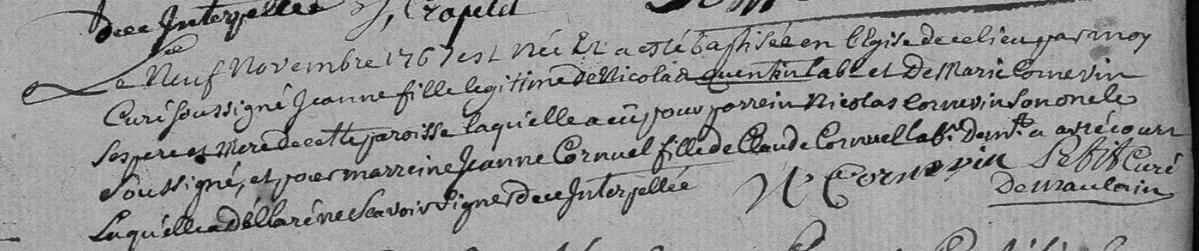 dece Interpellée
Le Neuf Novembre 1767 est Née Et a esté baptisée en l'Egise de ce lieu par moy
Curé soussigné Jeanne fille legitime de Nicolas quentin lab.r et De Marie Cornevin
ses pere et Mere de cette paroisse laquelle a eû pour parrein Nicolas Cornevin son oncle
soussigné, et pour marreine Jeanne Cornuel fille de Claude Cornuel lab.r dem.t a avrécourt
Laquélle a déllaré ne Scavoir Signer de ce Interpellée N Cornevin Petit Curé
De maulain